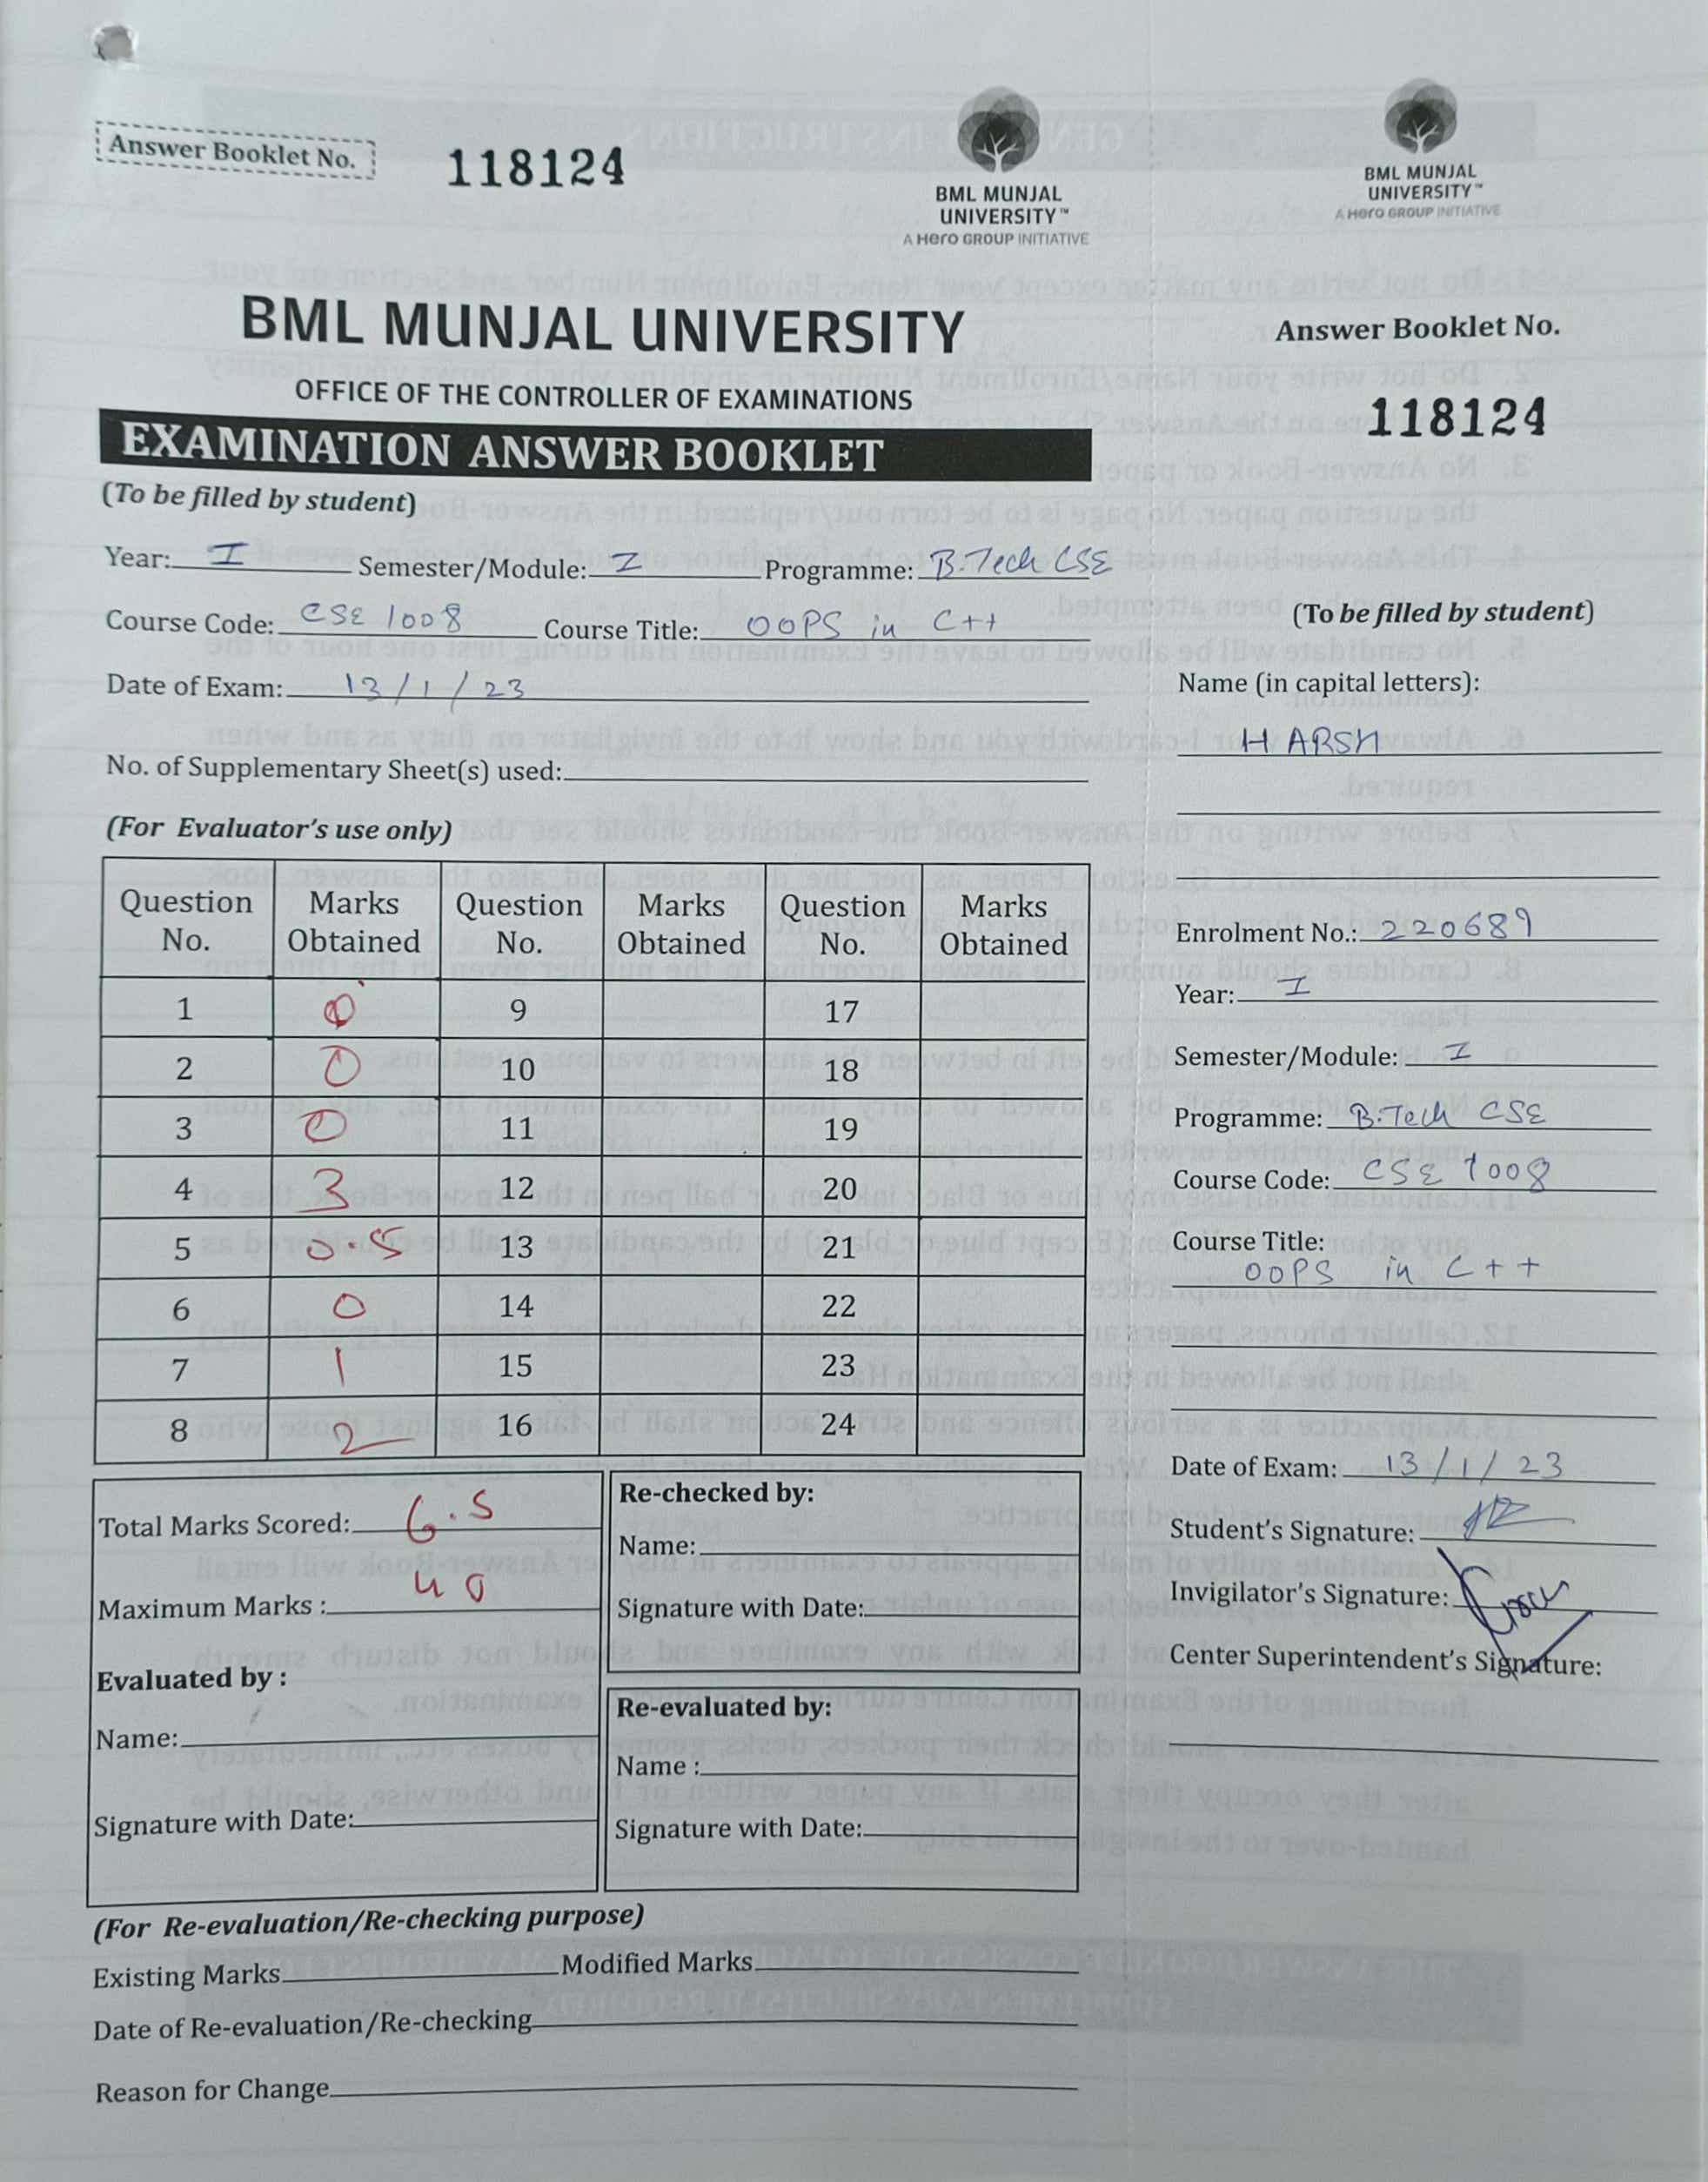 Answer Booklet No.
118124
BML MUNJAL
UNIVERSITY™
A Hero GROUP INITIATIVE
BML MUNJAL
UNIVERSITY™
A Hero GROUP INITIATIVE
BML MUNJAL UNIVERSITY
OFFICE OF THE CONTROLLER OF EXAMINATIONS
EXAMINATION ANSWER BOOKLET
(To be filled by student)
Year: I Semester/Module: I Programme: B.Tech CSE
Course Code: CSE 1008 Course Title: OOPS in C++
Date of Exam: 13/1/23
No. of Supplementary Sheet(s) used:
(For Evaluator's use only)
Question No. Marks Obtained Question No. Marks Obtained Question No. Marks Obtained
1 0 9 17
2 0 10 18
3 0 11 19
4 3 12 20
5 0.5 13 21
6 0 14 22
7 1 15 23
8 2 16 24
Total Marks Scored: 6.5
Maximum Marks : 40
Evaluated by :
Name:
Signature with Date:
Re-checked by:
Name:
Signature with Date:
Re-evaluated by:
Name :
Signature with Date:
(For Re-evaluation/Re-checking purpose)
Existing Marks Modified Marks
Date of Re-evaluation/Re-checking
Reason for Change
Answer Booklet No.
118124
(To be filled by student)
Name (in capital letters):
HARSH
Enrolment No.: 220689
Year: I
Semester/Module: I
Programme: B.Tech CSE
Course Code: CSE 1008
Course Title:
OOPS in C++
Date of Exam: 13/1/23
Student's Signature:
Invigilator's Signature:
Center Superintendent's Signature: